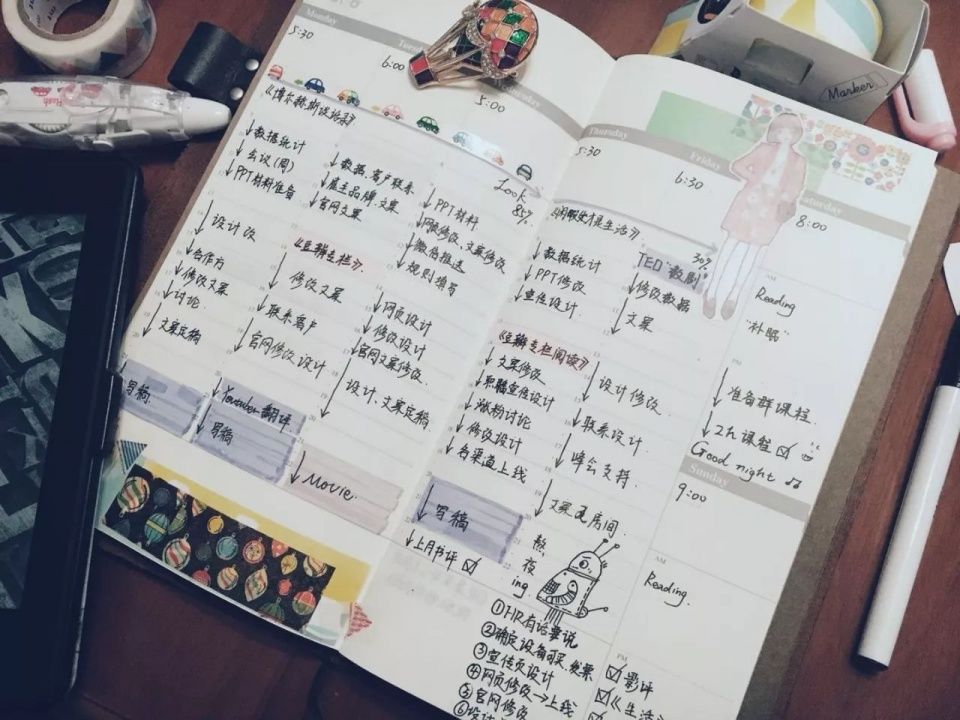 Monday
5:30
《博尔赫斯谈话录》
数据统计
会议(周)
PPT材料准备
设计改
合作方
修改文案
讨论
文案定稿
写稿
6:00
数据、客户联系
雇主品牌、文案
官网文案
《主编专栏》
修改文案
联系客户
官网修改、设计
翻译
写稿
5:00
Look
85%
PPT材料
网服修改、文案修改
微信推送
规则填写
网页设计
修改设计
官网文案修改.
设计、文案定稿
Movie.
Thursday
5:30
数据统计
PPT修改
宣传设计
《主编专栏阅读》
文案修改
职籍宣传设计
涨粉讨论
修改设计
各渠道上线
写稿
上月书评 ☑
Friday
6:30
30%
TED "数则"
修改数据
文案
设计修改.
联系设计.
峰会支持.
文案及房间
熬夜ing.
①HR有话要说
②确定设备可买、发票
③宣传页设计
④网页修改→上线
⑤官网修改
Saturday
8:00
AM
Reading
"补眠"
PM
准备群课程.
2h 课程 ☑
Good night
Sunday
9:00
AM
Reading.
PM
☑影评
☑《生活》
Marker